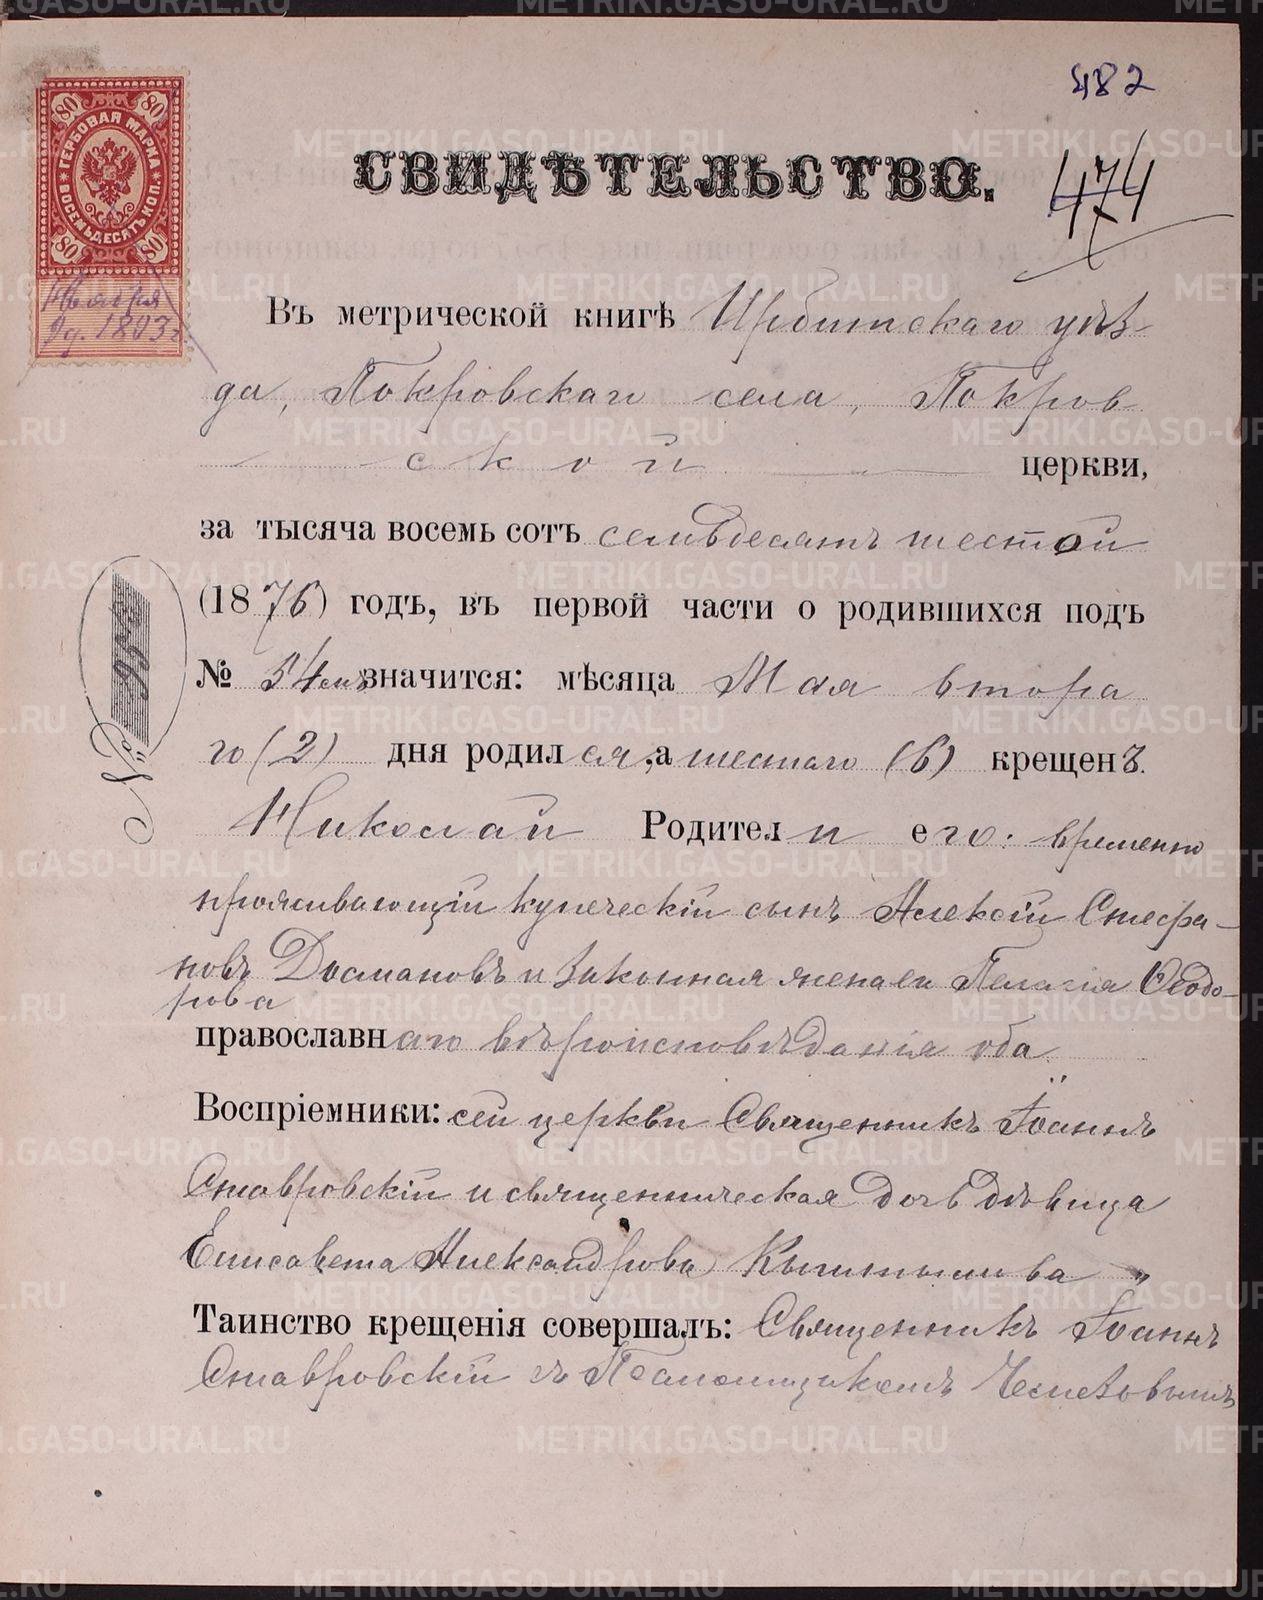 482
СВИДѢТЕЛЬСТВО.
474
80 80
ГЕРБОВАЯ МАРКА
ВОСЕМЬДЕСЯТЪ КОП.
80 80
9 д. 1893 г.
Въ метрической книгѣ Ирбитскаго уѣз-
да, Покровскаго села, Покров
ской церкви,
за тысяча восемь сотъ семьдесятъ шестой
(1876) годъ, въ первой части о родившихся подъ
№ 54 мъ значится: мѣсяца Мая втора
го (2) дня родился, а шестаго (6) крещенъ.
Николай Родители его: временно
проживающій купеческій сынъ Алексій Стефа-
новъ Досмановъ и законная жена его Пелагія Ѳеодо-
рова
православнаго вѣроисповѣданія оба.
Воспріемники: сей церкви Священникъ Іоаннъ
Ставровскій и священническая дочь дѣвица
Елисавета Александрова Кыштымова „
Таинство крещенія совершалъ: Священникъ Іоаннъ
Ставровскій съ Псаломщикомъ
№
METRIKI.GASO-URAL.RU